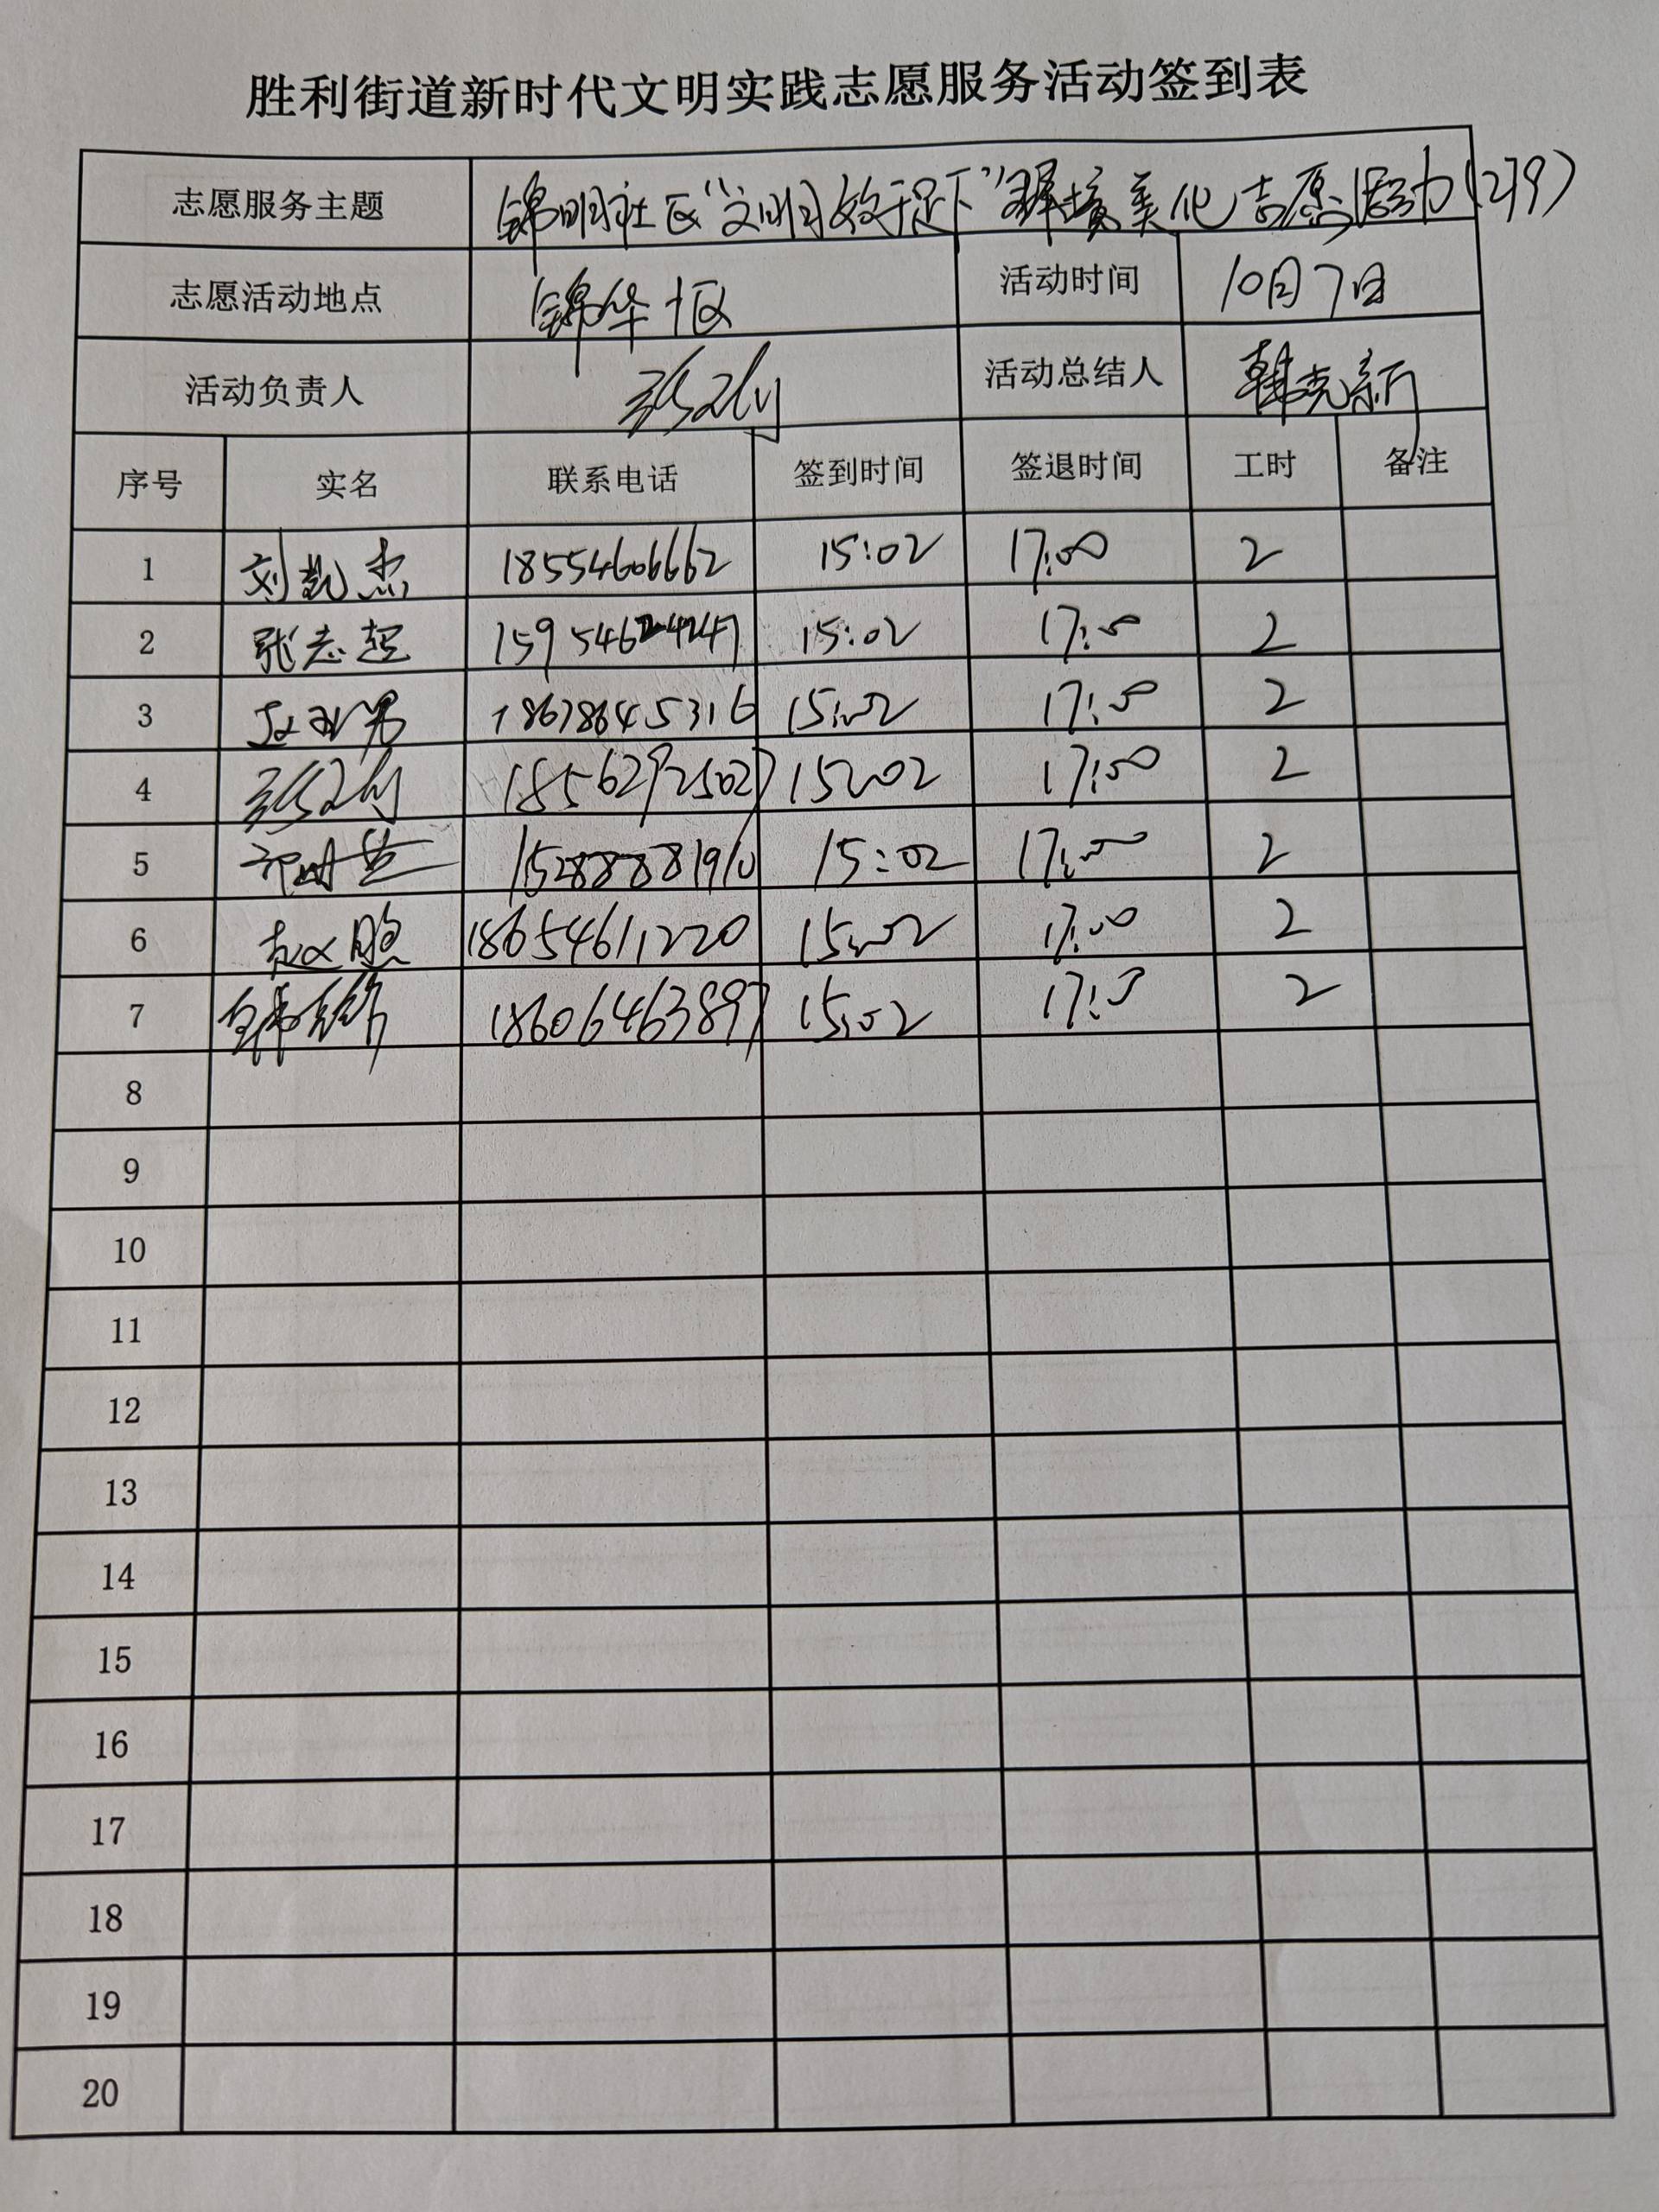 胜利街道新时代文明实践志愿服务活动签到表
志愿服务主题 锦明社区“文明始于足下”环境美化志愿活动(279)
志愿活动地点 锦华十区 活动时间 10月7日
活动负责人 活动总结人 韩克新
序号 实名 联系电话 签到时间 签退时间 工时 备注
1 刘凯杰 18554606662 15:02 17:00 2
2 张志超 15:02 17:00 2
3 18678645316 15:02 17:00 2
4 18562925027 15:02 17:00 2
5 15288881910 15:02 17:00 2
6 赵聪 18654611220 15:02 17:00 2
7 18606463897 15:02 17:00 2
8
9
10
11
12
13
14
15
16
17
18
19
20